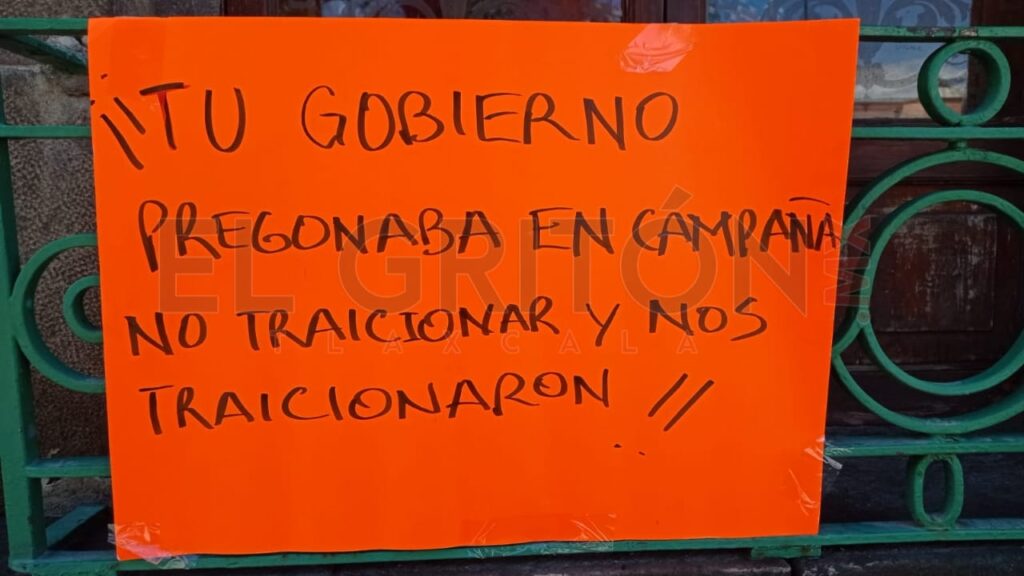 ¡¡TU GOBIERNO
PREGONABA EN CAMPAÑA
NO TRAICIONAR Y NOS
TRAICIONARON !!
EL GRITÓN MX
TLAXCALA